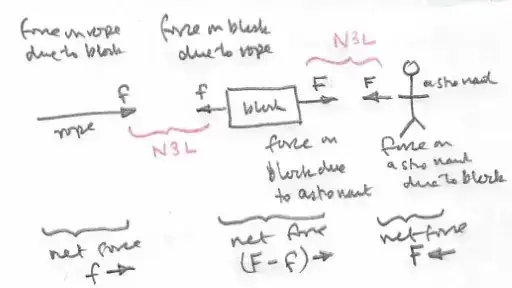 force on rope
due to block
force on block
due to rope
N3L
f
f
F
F
astronaut
rope
block
N3L
force on
block due
to astronaut
force on
astronaut
due to block
net force
f
net force
(F-f)
net force
F